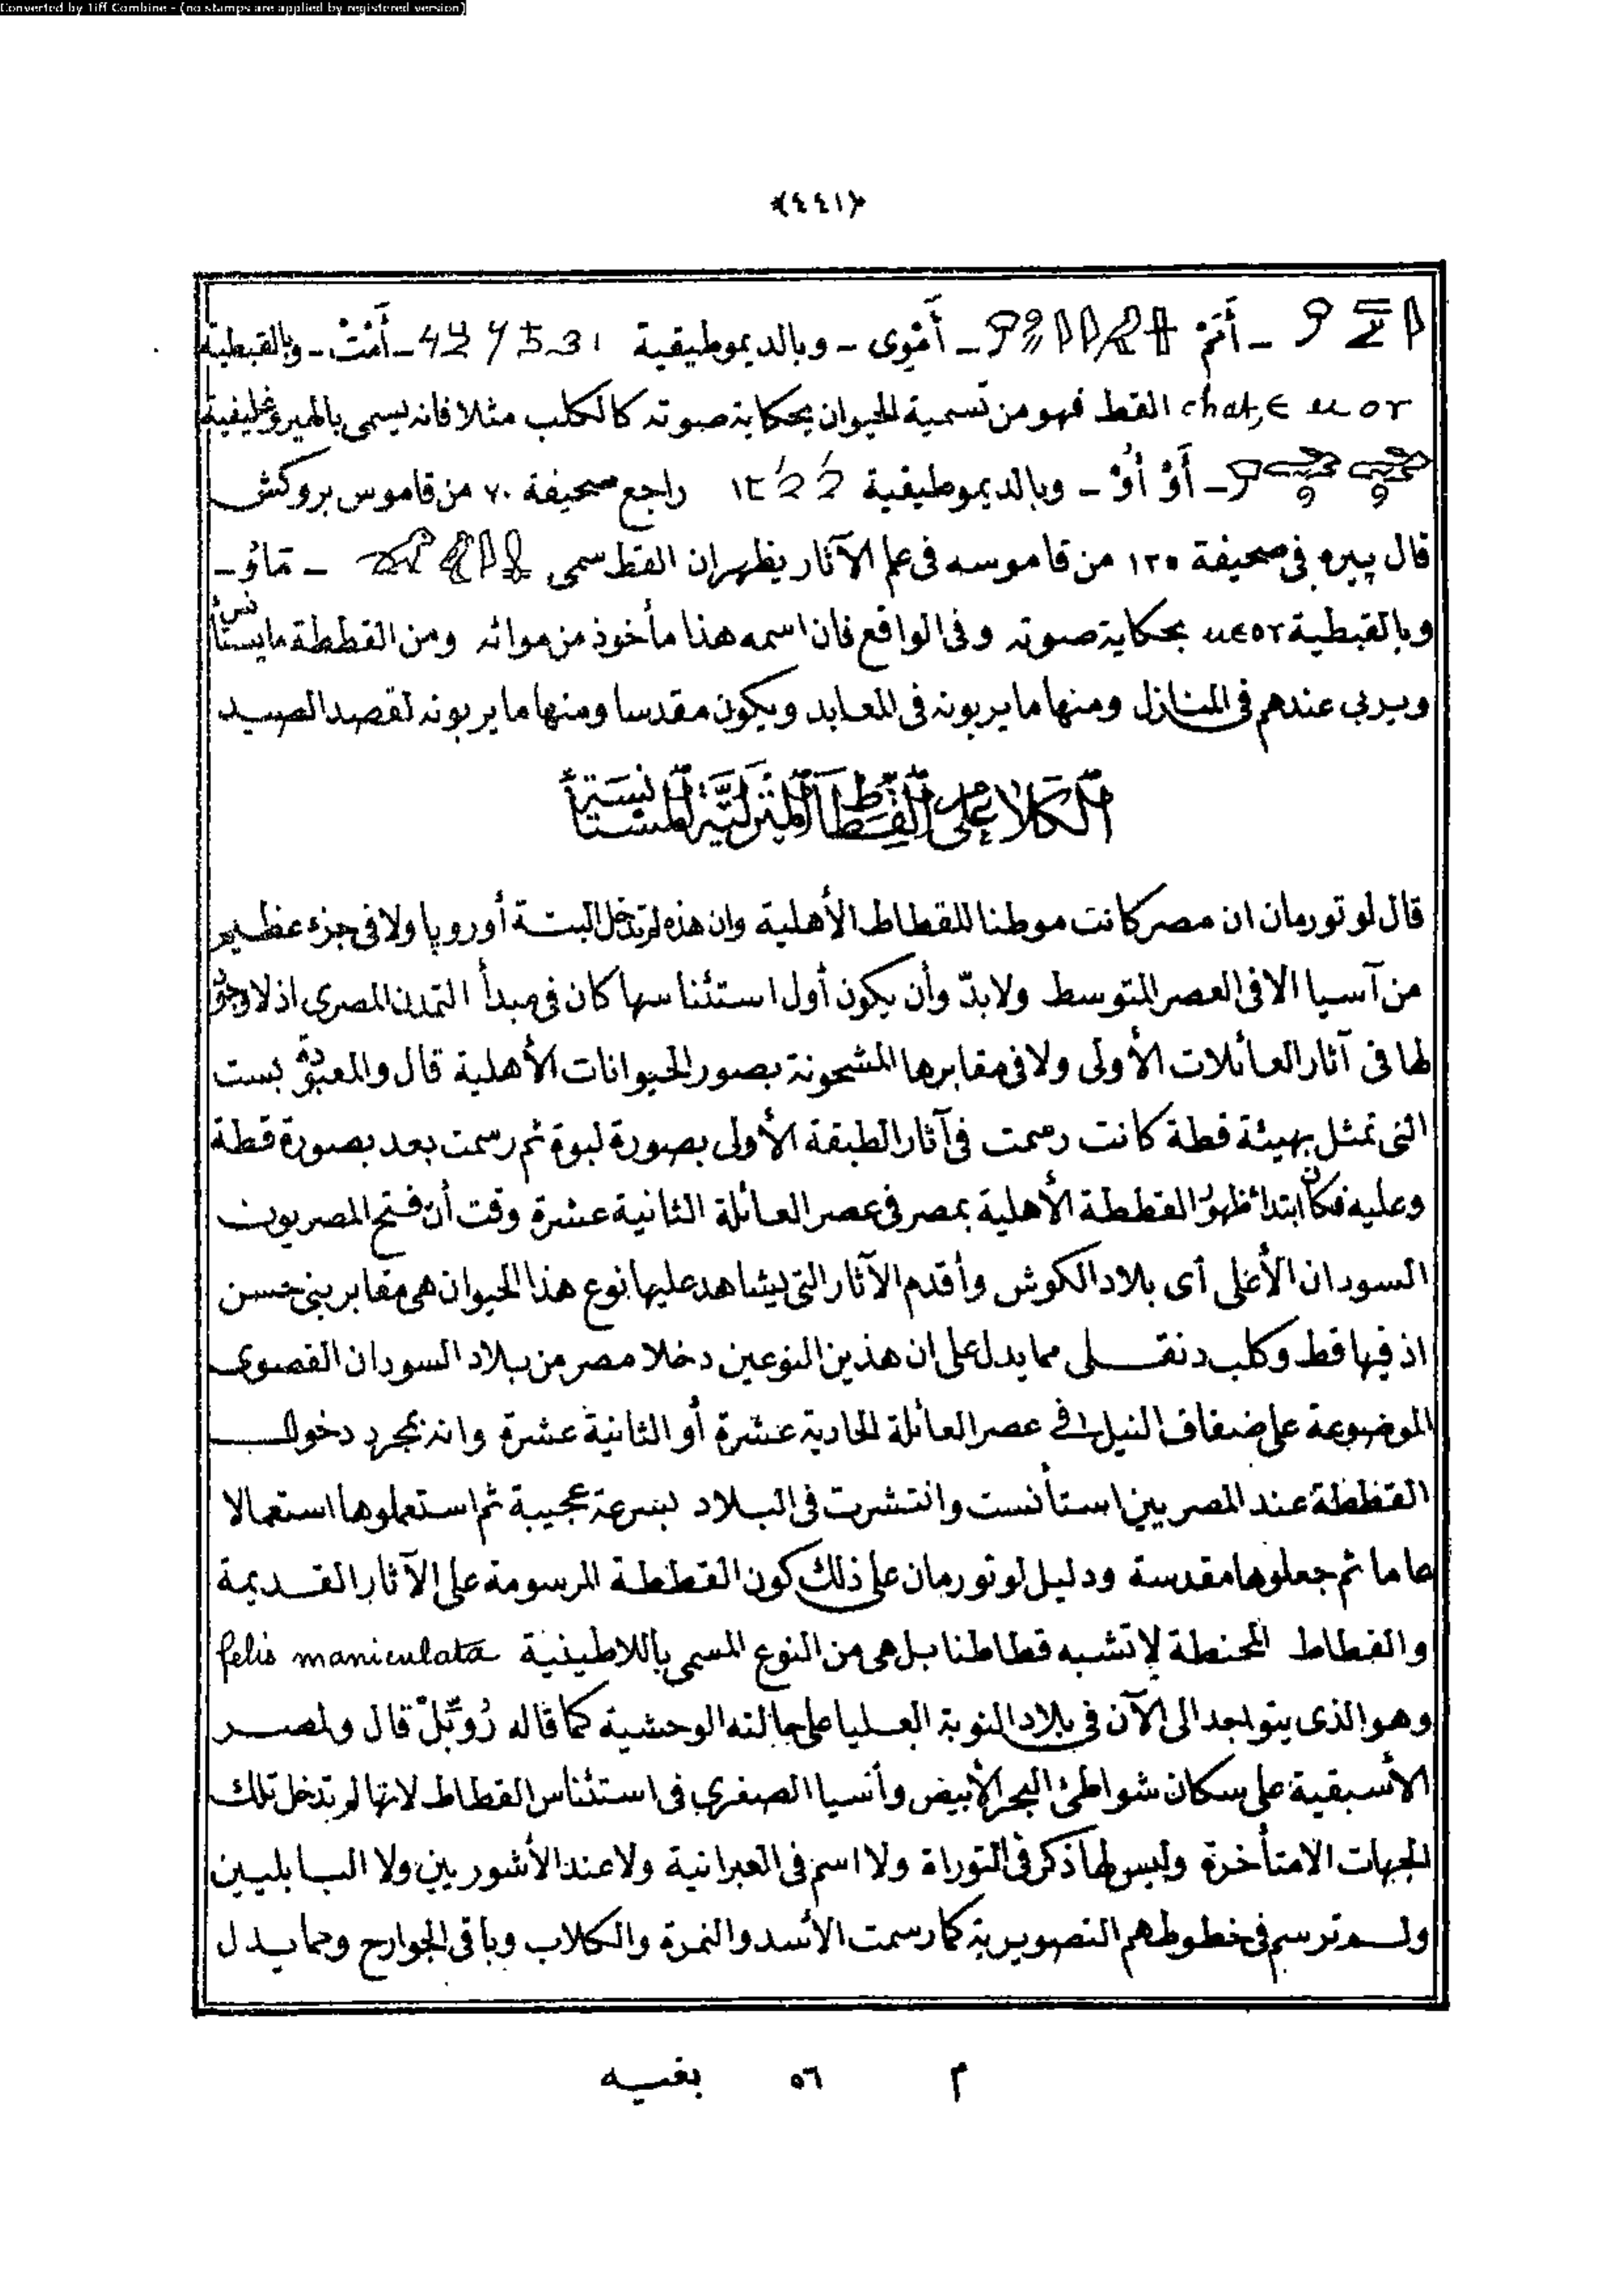 Converted by Tiff Combine - (no stamps are applied by registered version)
﴿٤٤١﴾
ـ أَنَمْ ـ أَمْوِى ـ وبالديموطيقية ـ أَمْتْ ـ وبالقبطية
chat, القط فهو من تسمية الحيوان بحكاية صوته كالكلب مثلا فانه يسمى بالهيروغليفية
ـ أَوْ أُوْ ـ وبالديموطيقية راجع صحيفة ٧٠ من قاموس بروكش
قال پيره فى صحيفة ١٣٥ من قاموسه فى علم الآثار يظهر ان القط سمى ـ مَاوُ ـ
وبالقبطية بحكاية صوته وفى الواقع فان اسمه هذا مأخوذ من موائه ومن القططة ما يستأنس
ويربى عندهم فى المنازل ومنها ما يربونه فى المعابد ويكون مقدسا ومنها ما يربونه لقصد الصيد
الكلام على القطاط المنزلية المستأنسة
قال لوتورمان ان مصر كانت موطنا للقطاط الأهلية وان هذه لم تدخل البتة أوروپا ولا فى جزء عظيم
من آسيا الا فى العصر المتوسط ولابدّ وأن يكون أول استئناسها كان فى مبدأ التمدن المصرى اذ لا وجود
لها فى آثار العائلات الأولى ولا فى مقابرها المشحونة بصور الحيوانات الأهلية قال والمعبودة بست
التى تمثل بهيئة قطة كانت رسمت فى آثار الطبقة الأولى بصورة لبوة ثم رسمت بعد بصورة قطة
وعليه فكان ابتداء ظهور القططة الأهلية بمصر فى عصر العائلة الثانية عشرة وقت أن فتح المصريون
السودان الأعلى أى بلاد الكوش وأقدم الآثار التى يشاهد عليها نوع هذا الحيوان هى مقابر بنى حسن
اذ فيها قط وكلب دنقلى مما يدل على ان هذين النوعين دخلا مصر من بلاد السودان القصوى
الموضوعة على ضفاف النيل فى عصر العائلة الحادية عشرة أو الثانية عشرة وانه بمجرد دخول
القططة عند المصريين استأنست وانتشرت فى البلاد بسرعة عجيبة ثم استعملوها استعمالا
عاما ثم جعلوها مقدسة ودليل لوتورمان على ذلك كون القططة المرسومة على الآثار القديمة
والقطاط المحنطة لا تشبه قطاطنا بل هى من النوع المسمى باللاطينية felis maniculata
وهو الذى يتواجد الى الآن فى بلاد النوبة العليا على حالته الوحشية كما قاله رُوپّلْ قال ولمصر
الأسبقية على سكان شواطئ البحر الأبيض وأنسيا الصغرى فى استئناس القطاط لانها لم تدخل تلك
الجهات الا متأخرة وليس لها ذكر فى التوراة ولا اسم فى العبرانية ولا عند الأشوريين ولا البابليين
ولم ترسم فى خطوطهم التصويرية كما رسمت الأسد والنمرة والكلاب وباقى الجوارح ومما يدل
م ٥٦ بغيه